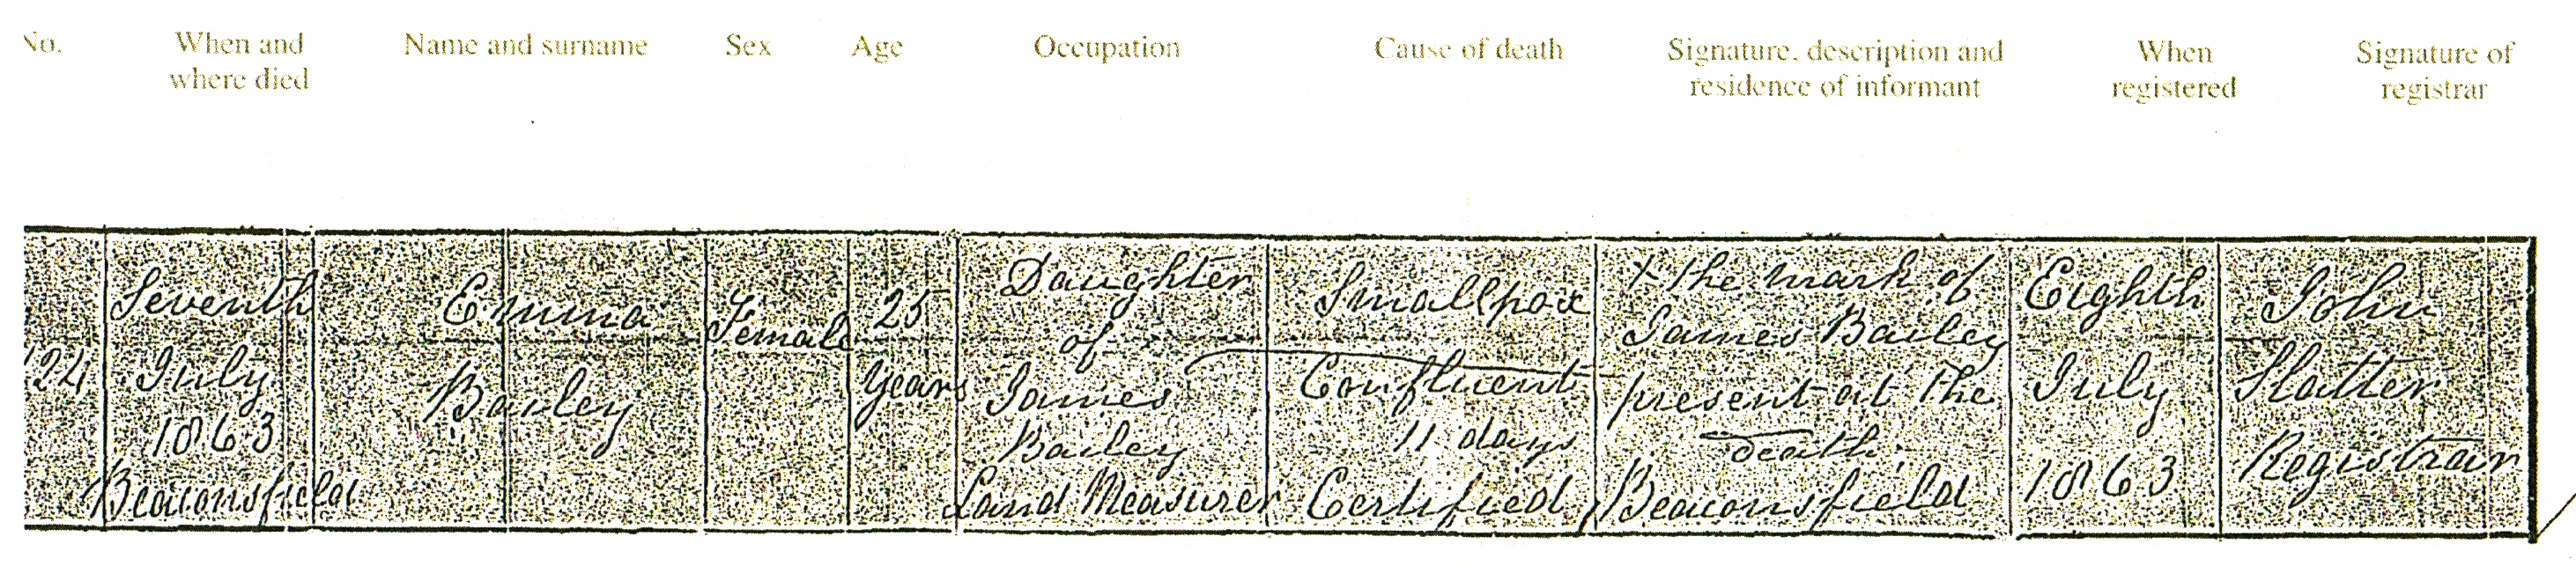 No.
When and
where died
Name and surname
Sex
Age
Occupation
Cause of death
Signature, description and
residence of informant
When
registered
Signature of
registrar
124
Seventh
July
1863
Beaconsfield
Emma
Bailey
Female
25
years
Daughter
of
James
Bailey
Land Measurer
Smallpox
Confluent
11 days
Certified
X the mark of
James Bailey
present at the
death.
Beaconsfield
Eighth
July
1863
John
Slatter
Registrar